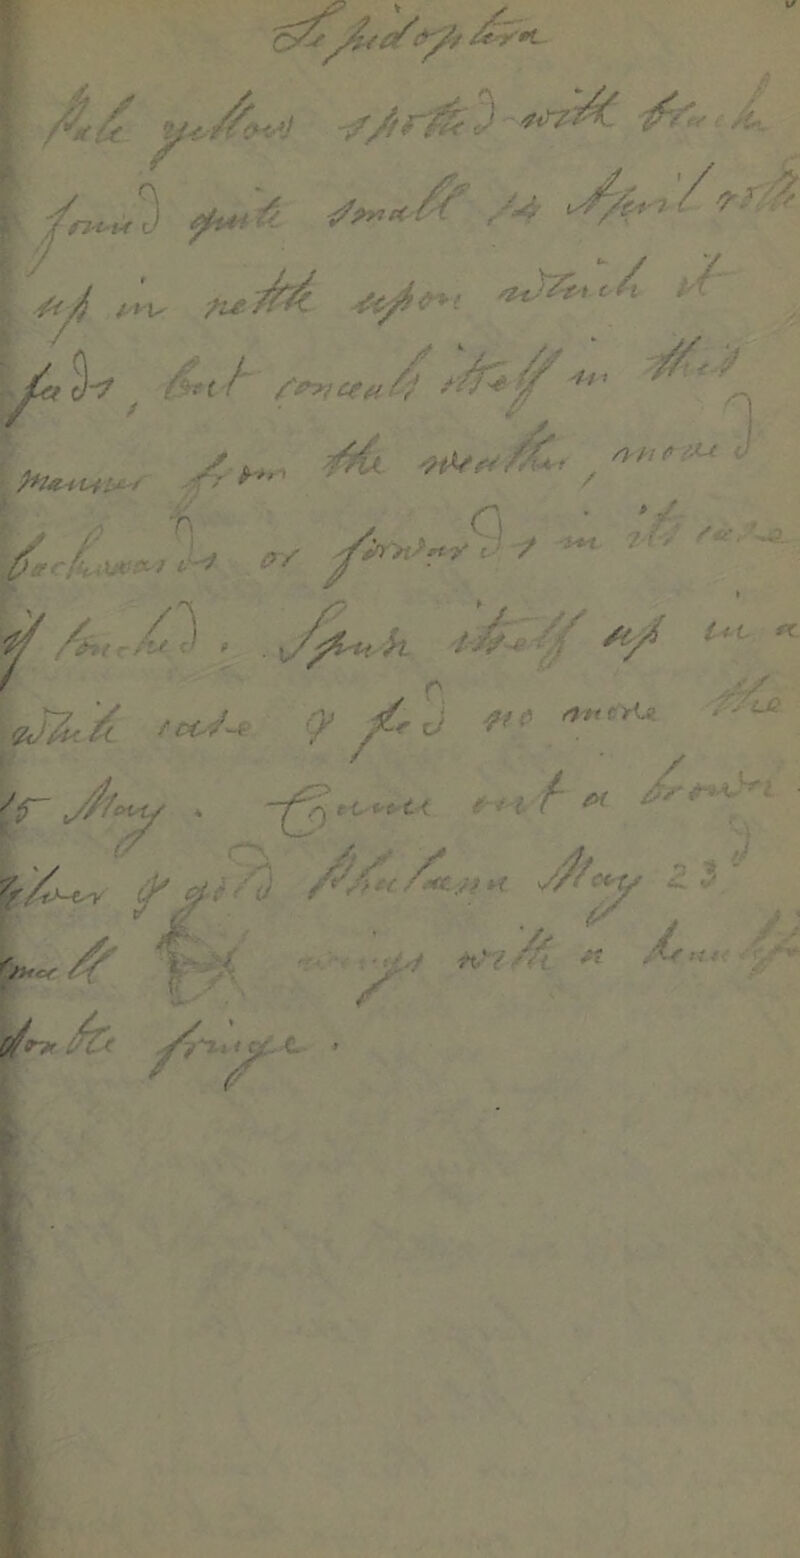 Lepidoptera
Pale yellow spotted with black
found quite small 14 April roll
up in nettle upon which it
feeds, but conceals itself in this
manner from the weather, moved
backwards or forwards in its case
if touched. Spun itself up in a
white case & fed no more the
15 May. Came out a brown
silver & gold Phalaena May 23d
small wings with a beautiful
double fringe.